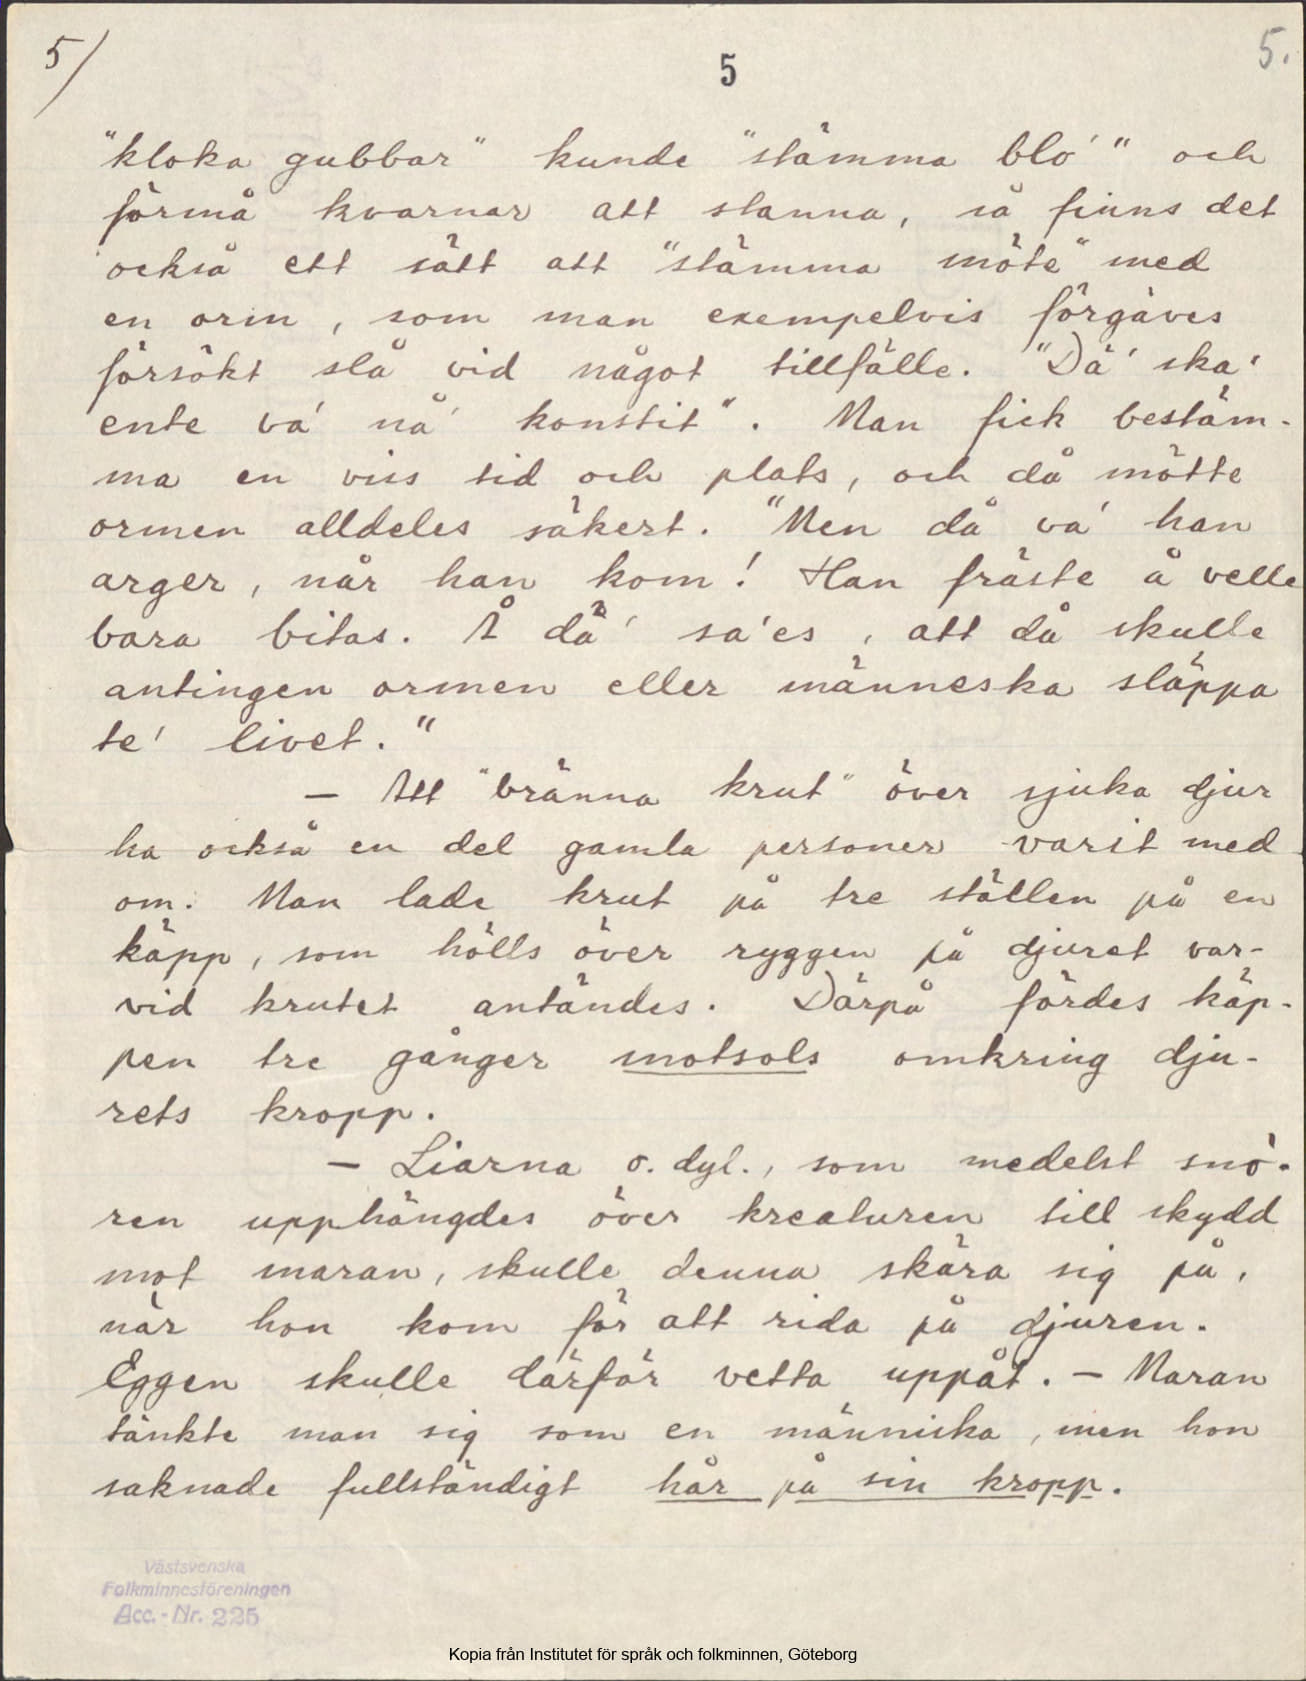 5/
5
5.
"kloka gubbar" kunde "stämma blo'" och
förmå kvarnar att stanna, så finns det
också ett sätt att "stämma möte" med
en orm, som man exempelvis förgäves
försökt slå vid något tillfälle. "Dä' ska'
ente va' nå' konstit". Man fick bestäm-
ma en viss tid och plats, och då mötte
ormen alldeles säkert. "Men då va' han
arger, når han kom! Han fräste å velle
bara bitas. Å dä' sa'es, att då skulle
antingen ormen eller människa släppa
te' livet."
- Att "bränna krut" över sjuka djur
ha också en del gamla personer varit med
om. Man lade krut på tre ställen på en
käpp, som hölls över ryggen på djuret var-
vid krutet antändes. Därpå fördes käp-
pen tre gånger motsols omkring dju-
rets kropp.
- Liarna o. dyl., som medelst snö-
ren upphängdes över kreaturen till skydd
mot maran, skulle denna skära sig på,
när hon kom för att rida på djuren.
Eggen skulle därför vetta uppåt. - Maran
tänkte man sig som en människa, men hon
saknade fullständigt hår på sin kropp.
Västsvenska
Folkminnesföreningen
Acc.-Nr. 225
Kopia från Institutet för språk och folkminnen, Göteborg